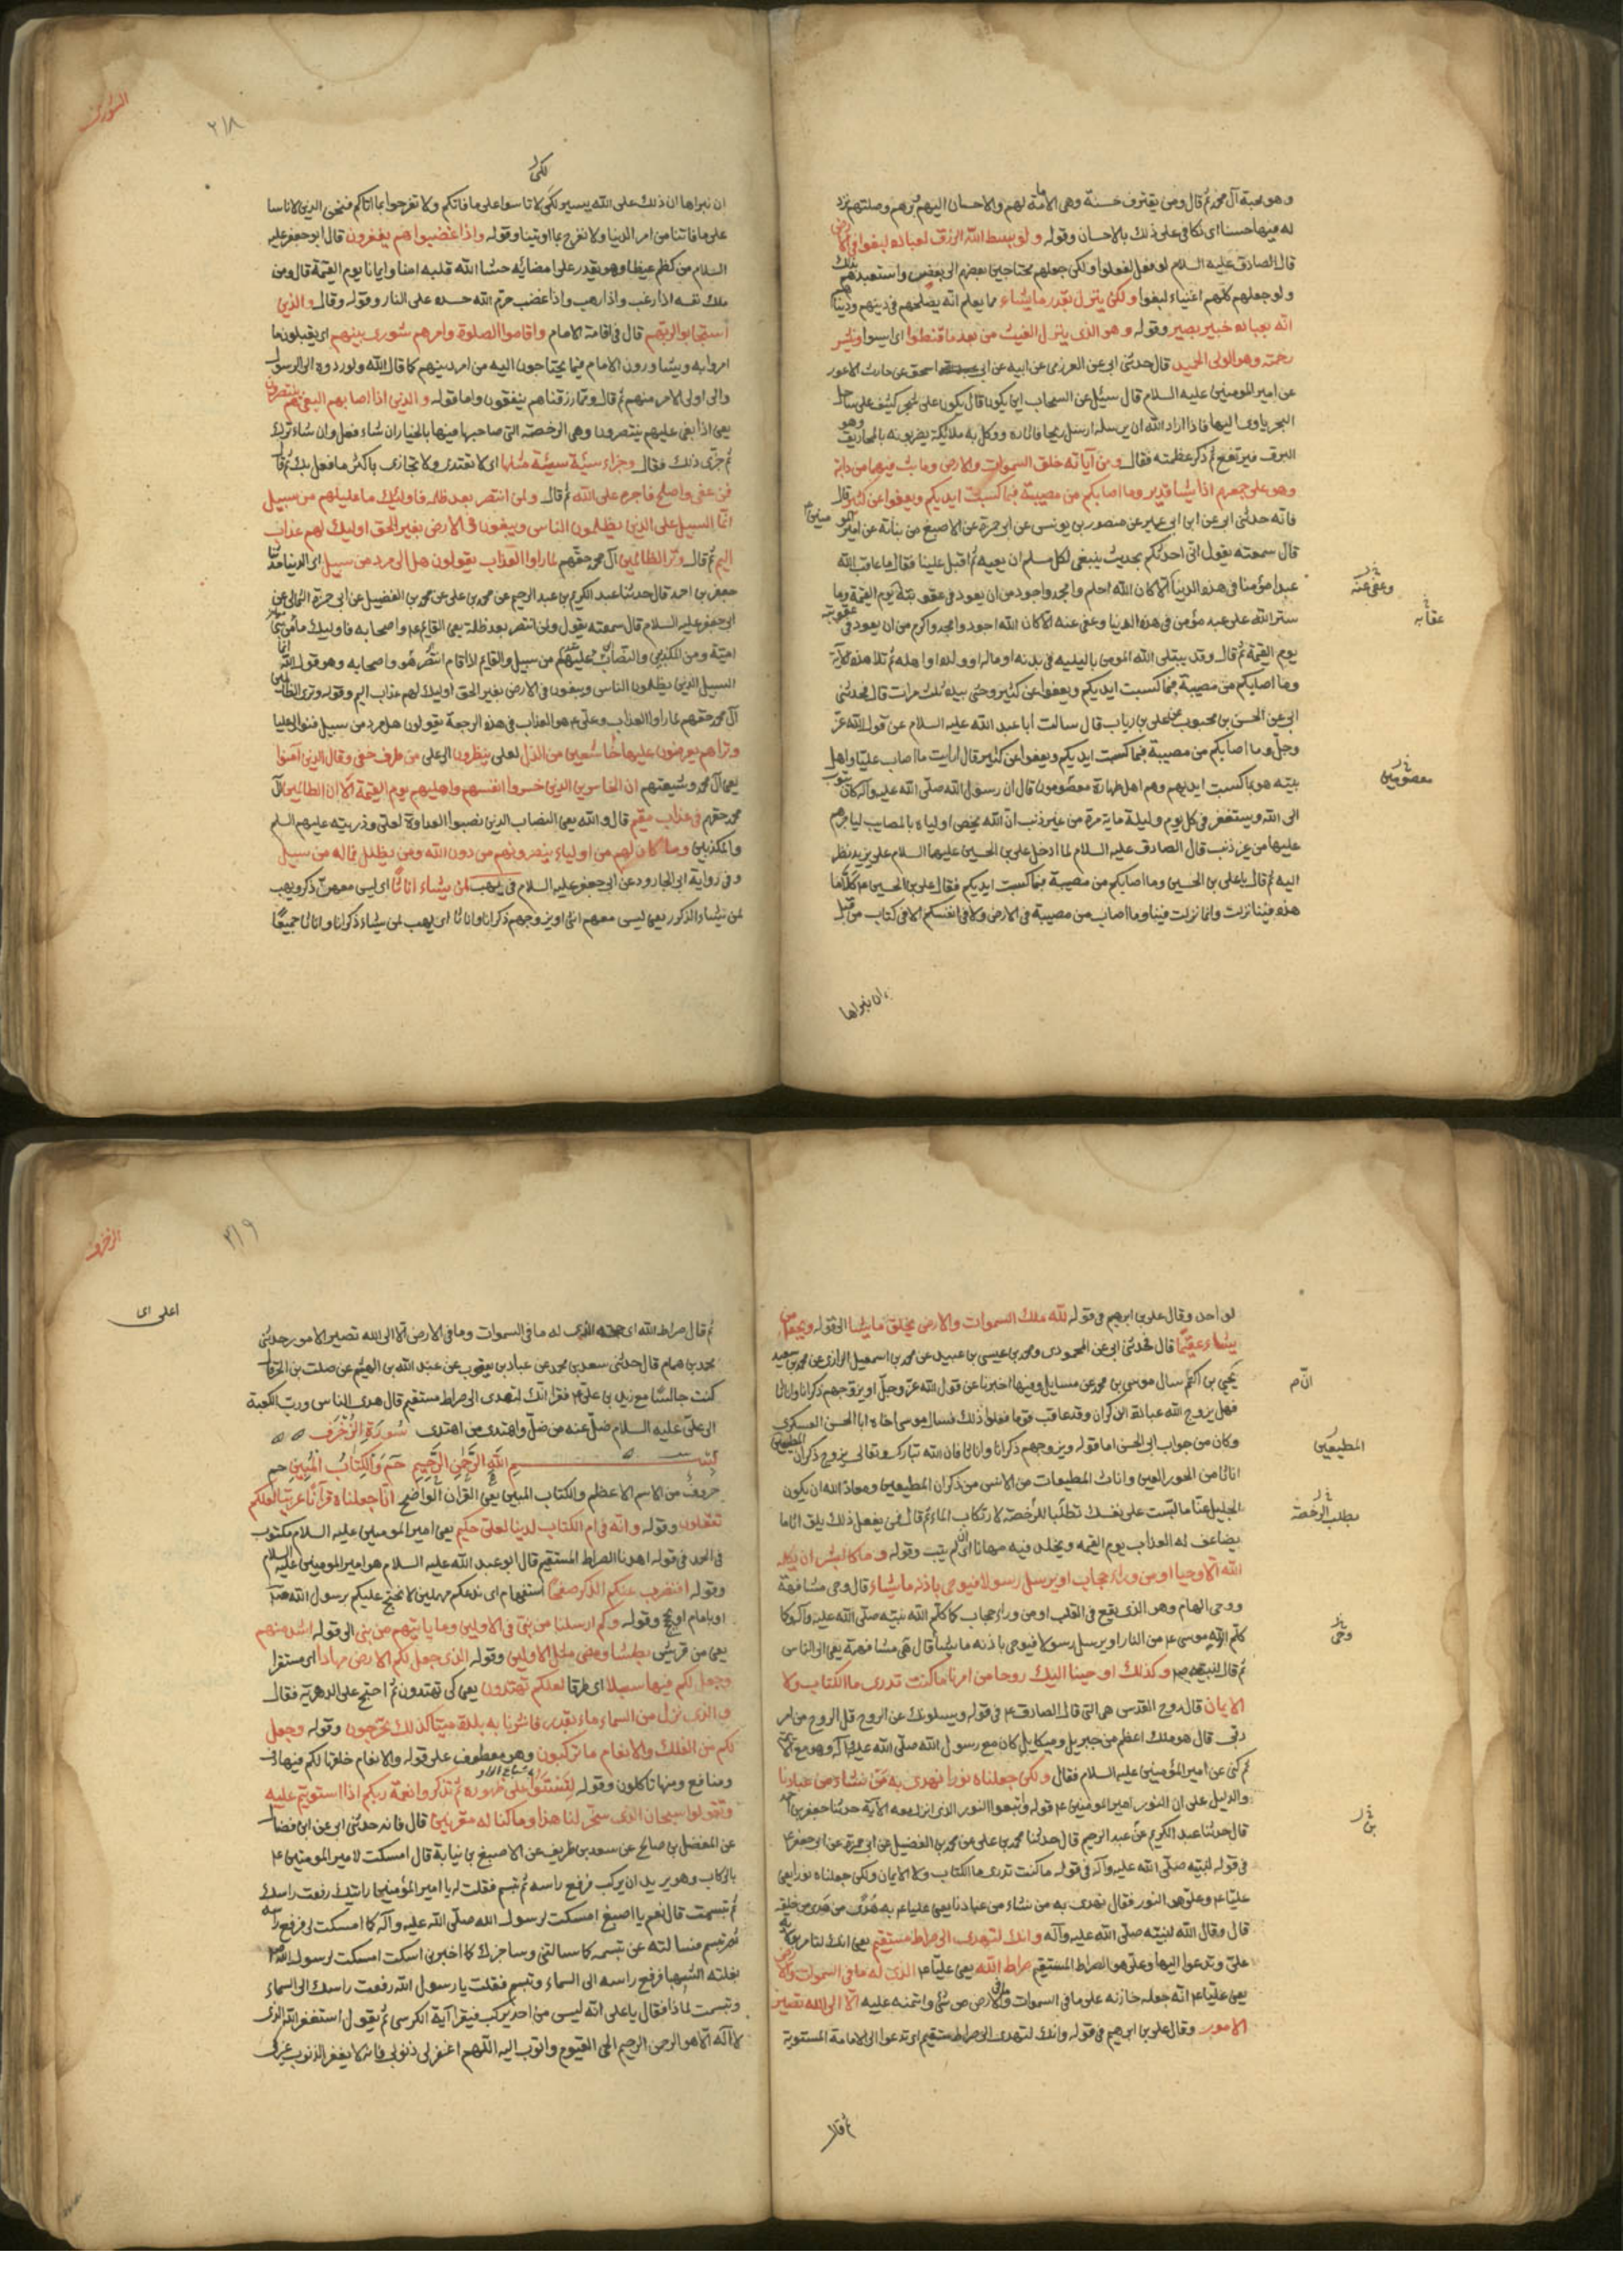 وهو محبة آل محمد ثم قال ومن يقترف حسنة وهى الامامة لهم والاحسان اليهم وبرهم وصلتهم نزد
له فيها حسنا اى نكافى على ذلك بالاحسان وقوله ولو بسط الله الرزق لعباده لبغوا فى الارض
قال الصادق عليه السلام لو فعل لفعلوا ولكن جعلهم محتاجين بعضهم الى بعض واستعبدهم بذلك
ولو جعلهم كلهم اغنياء لبغوا ولكن ينزل بقدر ما يشاء مما يعلم انه يصلحهم فى دينهم ودنياهم
انه بعباده خبير بصير وقوله وهو الذى ينزل الغيث من بعد ما قنطوا اى ايسوا وينشر
رحمته وهو الولى الحميد قال حدثنى ابى عن العرزمى عن ابيه عن ابى اسحق عن حارث الاعور
عن امير المومنين عليه السلام قال سئل عن السحاب اين يكون قال يكون على شجر كثيف على ساحل
البحر ياوى اليها فاذا اراد الله ان يرسله ارسل ريحا فاثاره ووكل به ملائكة يضربونه بالمخاريق وهو
البرق فيرتفع ثم ذكر عظمته فقال ومن آياته خلق السموات والارض وما بث فيهما من دابة
وهو على جمعهم اذا يشا قدير وما اصابكم من مصيبة فبما كسبت ايديكم ويعفوا عن كثير قال
فانه حدثنى ابى عن ابن ابى عمير عن منصور بن يونس عن ابى حمزة عن الاصبغ من نباتة عن امير المومنين
قال سمعته يقول انى احدثكم بحديث ينبغى لكل مسلم ان يعيه ثم اقبل علينا فقال ما عاقب الله
عبدا مؤمنا فى هذه الدنيا الا كان الله احلم وامجد واجود من ان يعود فى عقوبته يوم القيمة وما
وعفى عنه
ستر الله على عبد مؤمن فى هذه الدنيا وعفى عنه الا كان الله اجود وامجد واكرم من ان يعود فى عقوبته
عقابه
يوم القيمة ثم قال وقد يبتلى الله المومن بالبليه فى بدنه او ماله او ولده او اهله ثم تلا هذه الآية
وما اصابكم من مصيبة فبما كسبت ايديكم ويعفوا عن كثير وحثى بيده ثلث مرات قال فحدثنى
ابى عن الحسن بن محبوب عن على بن رياب قال سالت أبا عبد الله عليه السلام عن قول الله عز
وجل وما اصابكم من مصيبة فبما كسبت ايديكم ويعفوا عن كثير قال ارايت ما اصاب عليا واهل
بيته هو بما كسبت ايديهم وهم اهل طهارة معصومون قال ان رسول الله صلى الله عليه وآله كان يتوب
معصومين
الى الله ويستغفر فى كل يوم وليلة ماية مرة من غير ذنب ان الله يخص اولياه بالمصايب لياجرهم
عليها من غير ذنب قال الصادق عليه السلام لما ادخل على بن الحسين عليهما السلام على يزيد نظر
اليه ثم قال يا على بن الحسين وما اصابكم من مصيبة فبما كسبت ايديكم فقال على بن الحسين ع كلا ما
هذه فينا نزلت وانما نزلت فينا وما اصاب من مصيبة فى الارض ولا فى انفسكم الا فى كتاب من قبل
ان نبراها
الشورى
٢١٨
لكى
ان نبراها ان ذلك على الله يسير لكى لا تاسوا على ما فاتكم ولا تفرحوا بما اتاكم فنحن الذين لا ناسا
على ما فاتنا من امر الدنيا ولا نفرح بما اوتينا وقوله واذا غضبوا هم يغفرون قال ابو جعفر عليه
السلام من كظم غيظا وهو يقدر على امضائه حشا الله قلبه امنا وايمانا يوم القيمة قال ومن
ملك نفسه اذا رغب واذا رهب واذا غضب حرم الله جسده على النار وقوله وقال والذين
استجابوا لربهم قال فى اقامة الامام واقاموا الصلوة وامرهم شورى بينهم اى يقبلون ما
امروا به ويشاورون الامام فيما يحتاجون اليه من امر دينهم كما قال الله ولو ردوه الى الرسول
والى اولى الامر منهم ثم قال ومما رزقناهم ينفقون واما قوله والذين اذا اصابهم البغى هم ينتصرون
يعنى اذا بغى عليهم ينتصرون وهى الرخصة التى صاحبها فيها بالخيار ان شاء فعل وان شاء ترك
ثم جزى ذلك فقال وجزاء سيئة سيئة مثلها اى لا تعتدى ولا تجازى باكثر ما فعل بك ثم قال
فمن عفى واصلح فاجره على الله ثم قال ولمن انتصر بعد ظلمه فاوليك ما عليهم من سبيل
انما السبيل على الذين يظلمون الناس ويبغون فى الارض بغير الحق اوليك لهم عذاب
اليم ثم قال وترى الظالمين آل محمد حقهم لما راوا العذاب يقولون هل الى مرد من سبيل اى الدنيا حدثنا
جعفر بن احمد قال حدثنا عبد الكريم بن عبد الرحيم عن محمد بن على عن محمد بن الفضيل عن ابى حمزة الثمالى عن
ابى جعفر عليه السلام قال سمعته يقول ولمن انتصر بعد ظلمه يعنى القائم ع واصحابه فاوليك ما
امية ومن المكذبين والنصاب عليهم من سبيل والقايم اذا قام انتصر هو واصحابه وهو قول الله انما
السبيل الذين يظلمون الناس ويبغون فى الارض بغير الحق اوليك لهم عذاب اليم وقوله وترى الظالمين
آل محمد حقهم لما راوا العذاب وعلى ع هو العذاب فى هذه الرجعة يقولون هل مرد من سبيل فنوالى عليا
وتراهم يعرضون عليها خاشعين من الذل لعلى ينظرون الى على من طرف خفى وقال الذين آمنوا
يعنى آل محمد وشيعتهم ان الخاسرين الذين خسروا انفسهم واهليهم يوم القيمة الا ان الظالمين آل
محمد حقهم فى عذاب مقيم قال والله يعنى النصاب الذين نصبوا العداوة لعلى وذريته عليهم السلم
والمكذبين وما كان لهم من اولياء ينصرونهم من دون الله ومن يظلل فما له من سبيل
وفى رواية ابى الجارود عن ابى جعفر عليه السلام فى يهب لمن يشاء اناثا اى ليس معهن ذكر ويهب
لمن يشاء الذكور يعنى ليس معهم انثى او يزوجهم ذكرانا واناثا اى يهب لمن يشاء ذكرانا واناثا جميعا
لو احد وقال على بن ابرهيم فى قوله لله ملك السموات والارض يخلق ما يشا الى قوله ويجعل من
يشاء عقيما قال فحدثنى ابى عن المحمودى ومحمد بن عيسى بن عبيد عن محمد بن اسمعيل الرازى عن محمد بن سعيد
يحيى بن اكثم سال موسى بن محمد عن مسايل وفيها اخبرنا عن قول الله عز وجل او يزوجهم ذكرانا واناثا
فهل يزوج الله عباده الذكران وقد عاقب قوما فعلوا ذلك فسال موسى اخاه ابا الحسن العسكرى
وكان من جواب ابى الحسن اما قوله ويزوجهم ذكرانا واناثا فان الله تبارك وتعالى يزوج ذكران المطيعين
المطيعين
اناثا من الحور العين واناث المطيعات من الانس من ذكران المطيعين ومعاذ الله ان يكون
الجليل عنا ما لبست على نفسك تطلبا للرخصة لارتكاب الماثم قال فمن يفعل ذلك يلق اثاما
يطلب الرخصة
يضاعف له العذاب يوم القيمه ويخلد فيه مهانا اى لم يتب وقوله وما كان لبشر ان يكلمه
الله الا وحيا او من وراء حجاب او يرسل رسولا فيوحى باذنه ما يشاء قال وحى مشافهة
ووحى الهام وهو الذى يقع فى القلب او من وراء حجاب كما كلم الله نبيه صلى الله عليه وآله وكما
كلم الله موسى ع من النار او يرسل رسولا فيوحى باذنه ما يشا قال هى مشافهة يعنى الى الناس
وحى
ثم قال لنبيه ص وكذلك اوحينا اليك روحا من امرنا ما كنت تدرى ما الكتاب ولا
الايمان قال روح القدس هى التى قال الصادق ع فى قوله ويسلونك عن الروح قل الروح من امر
ربى قال هو ملك اعظم من جبريل وميكايل كان مع رسول الله صلى الله عليه وآله وهو مع الائمة
ثم كنى عن امير المؤمنين عليه السلام فقال ولكن جعلناه نورا نهدى به من نشاء من عبادنا
والدليل على ان النور امير المومنين ع قوله واتبعوا النور الذى انزل معه الآية حدثنا جعفر بن احمد
قال حدثنا عبد الكريم عن عبد الرحيم قال حدثنا محمد بن على عن محمد بن الفضيل عن ابى حمزة عن ابى جعفر ع
بن
فى قوله لنبيه صلى الله عليه وآله فى قوله ما كنت تدرى ما الكتاب ولا الايمان ولكن جعلناه نورا يعنى
عليا ع وعلى هو النور فقال نهدى به من نشاء من عبادنا يعنى عليا ع به هدى من هدى من خلقه
قال وقال الله لنبيه صلى الله عليه وآله وانك لتهدى الى صراط مستقيم يعنى انك لتامر بولاية
على وتدعوا اليها وعلى هو الصراط المستقيم صراط الله يعنى عليا ع الذى له ما فى السموات والارض
يعنى عليا ع انه جعله خازنه على ما فى السموات وما فى الارض من شئ وائتمنه عليه الا الى الله تصير
الامور وقال على بن ابرهيم فى قوله وانك لتهدى الى صراط مستقيم اى تدعوا الى الامامة المستوية
ثم قال
الزخرف
٢١٩
ثم قال صراط الله اى حجة الله الذى له ما فى السموات وما فى الارض الا الى الله تصير الامور حدثنى
محمد بن همام قال حدثنى سعد بن محمد عن عباد بن يعقوب عن عبد الله بن الهيثم عن صلت بن الحر قال
كنت جالسا مع زيد بن على ع فقرا انك لتهدى الى صراط مستقيم قال هدى الناس ورب الكعبة
الى على عليه السلام ضل عنه من ضل واهتدى من اهتدى سورة الزخرف
بسم الله الرحمن الرحيم حم والكتاب المبين حم
حروف من الاسم الاعظم والكتاب المبين يعنى القران الواضح انا جعلناه قرآنا عربيا لعلكم
تعقلون وقوله وانه فى ام الكتاب لدينا لعلى حكيم يعنى امير المومنين عليه السلام مكتوب
فى الحمد فى قوله اهدنا الصراط المستقيم قال ابو عبد الله عليه السلام هو امير المومنين عليه السلام
وقوله افنضرب عنكم الذكر صفحا استفهام اى ندعكم مهملين لا نحتج عليكم برسول الله ص
او بامام او بحج وقوله وكم ارسلنا من نبى فى الاولين وما ياتيهم من نبى الى قوله اشد منهم
يعنى من قريش بطشا ومضى مثل الاولين وقوله الذى جعل لكم الارض مهادا اى مستقرا
وجعل لكم فيها سبلا اى طرقا لعلكم تهتدون يعنى كى تهتدون ثم احتج على الدهرية فقال
والذى نزل من السماء ماء بقدر فانشرنا به بلدة ميتا كذلك تخرجون وقوله وجعل
لكم من الفلك والانعام ما تركبون وهو معطوف على قوله والانعام خلقها لكم فيها دفء
ومنافع ومنها تاكلون وقوله لتستووا على ظهوره ثم تذكروا نعمة ربكم اذا استويتم عليه
وتقولوا سبحان الذى سخر لنا هذا وما كنا له مقرنين قال فانه حدثنى ابى عن ابن فضال
عن المفضل بن صالح عن سعد بن طريف عن الاصبغ بن نباتة قال امسكت لامير المومنين ع
بالركاب وهو يريد ان يركب فرفع راسه ثم تبسم فقلت له يا امير المؤمنين رايتك رفعت راسك
ثم تبسمت قال نعم يا اصبغ امسكت لرسول الله صلى الله عليه وآله كما امسكت لى فرفع راسه
ثم تبسم فسالته عن تبسمه كما سالتنى وساخبرك كما اخبرنى امسكت لرسول الله ص
بغلته الشهبا فرفع راسه الى السماء وتبسم فقلت يا رسول الله رفعت راسك الى السماء
وتبسمت لماذا فقال يا على انه ليس من احد يركب فيقرا آية الكرسى ثم يقول استغفر الله الذى
لا اله الا هو الرحمن الرحيم الحى القيوم واتوب اليه اللهم اغفر لى ذنوبى فانه لا يغفر الذنوب غيرك